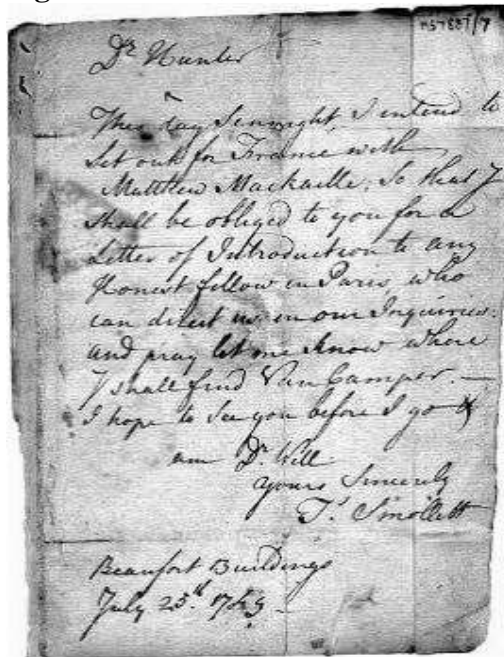 Dr Hunter
This day Sennight, I intend to
Set out for France with
Matthew Mackaille, So that I
Shall be obliged to you for a
Letter of Introduction to any
Honest fellow in Paris, who
can direct us in our Inquiries:
and pray let me know where
I shall find Van Camper. —
I hope to See you before I go &
am Dr Will
Yours Sincerely
Ts Smollett
Beaufort Buildings
July 25th 1749